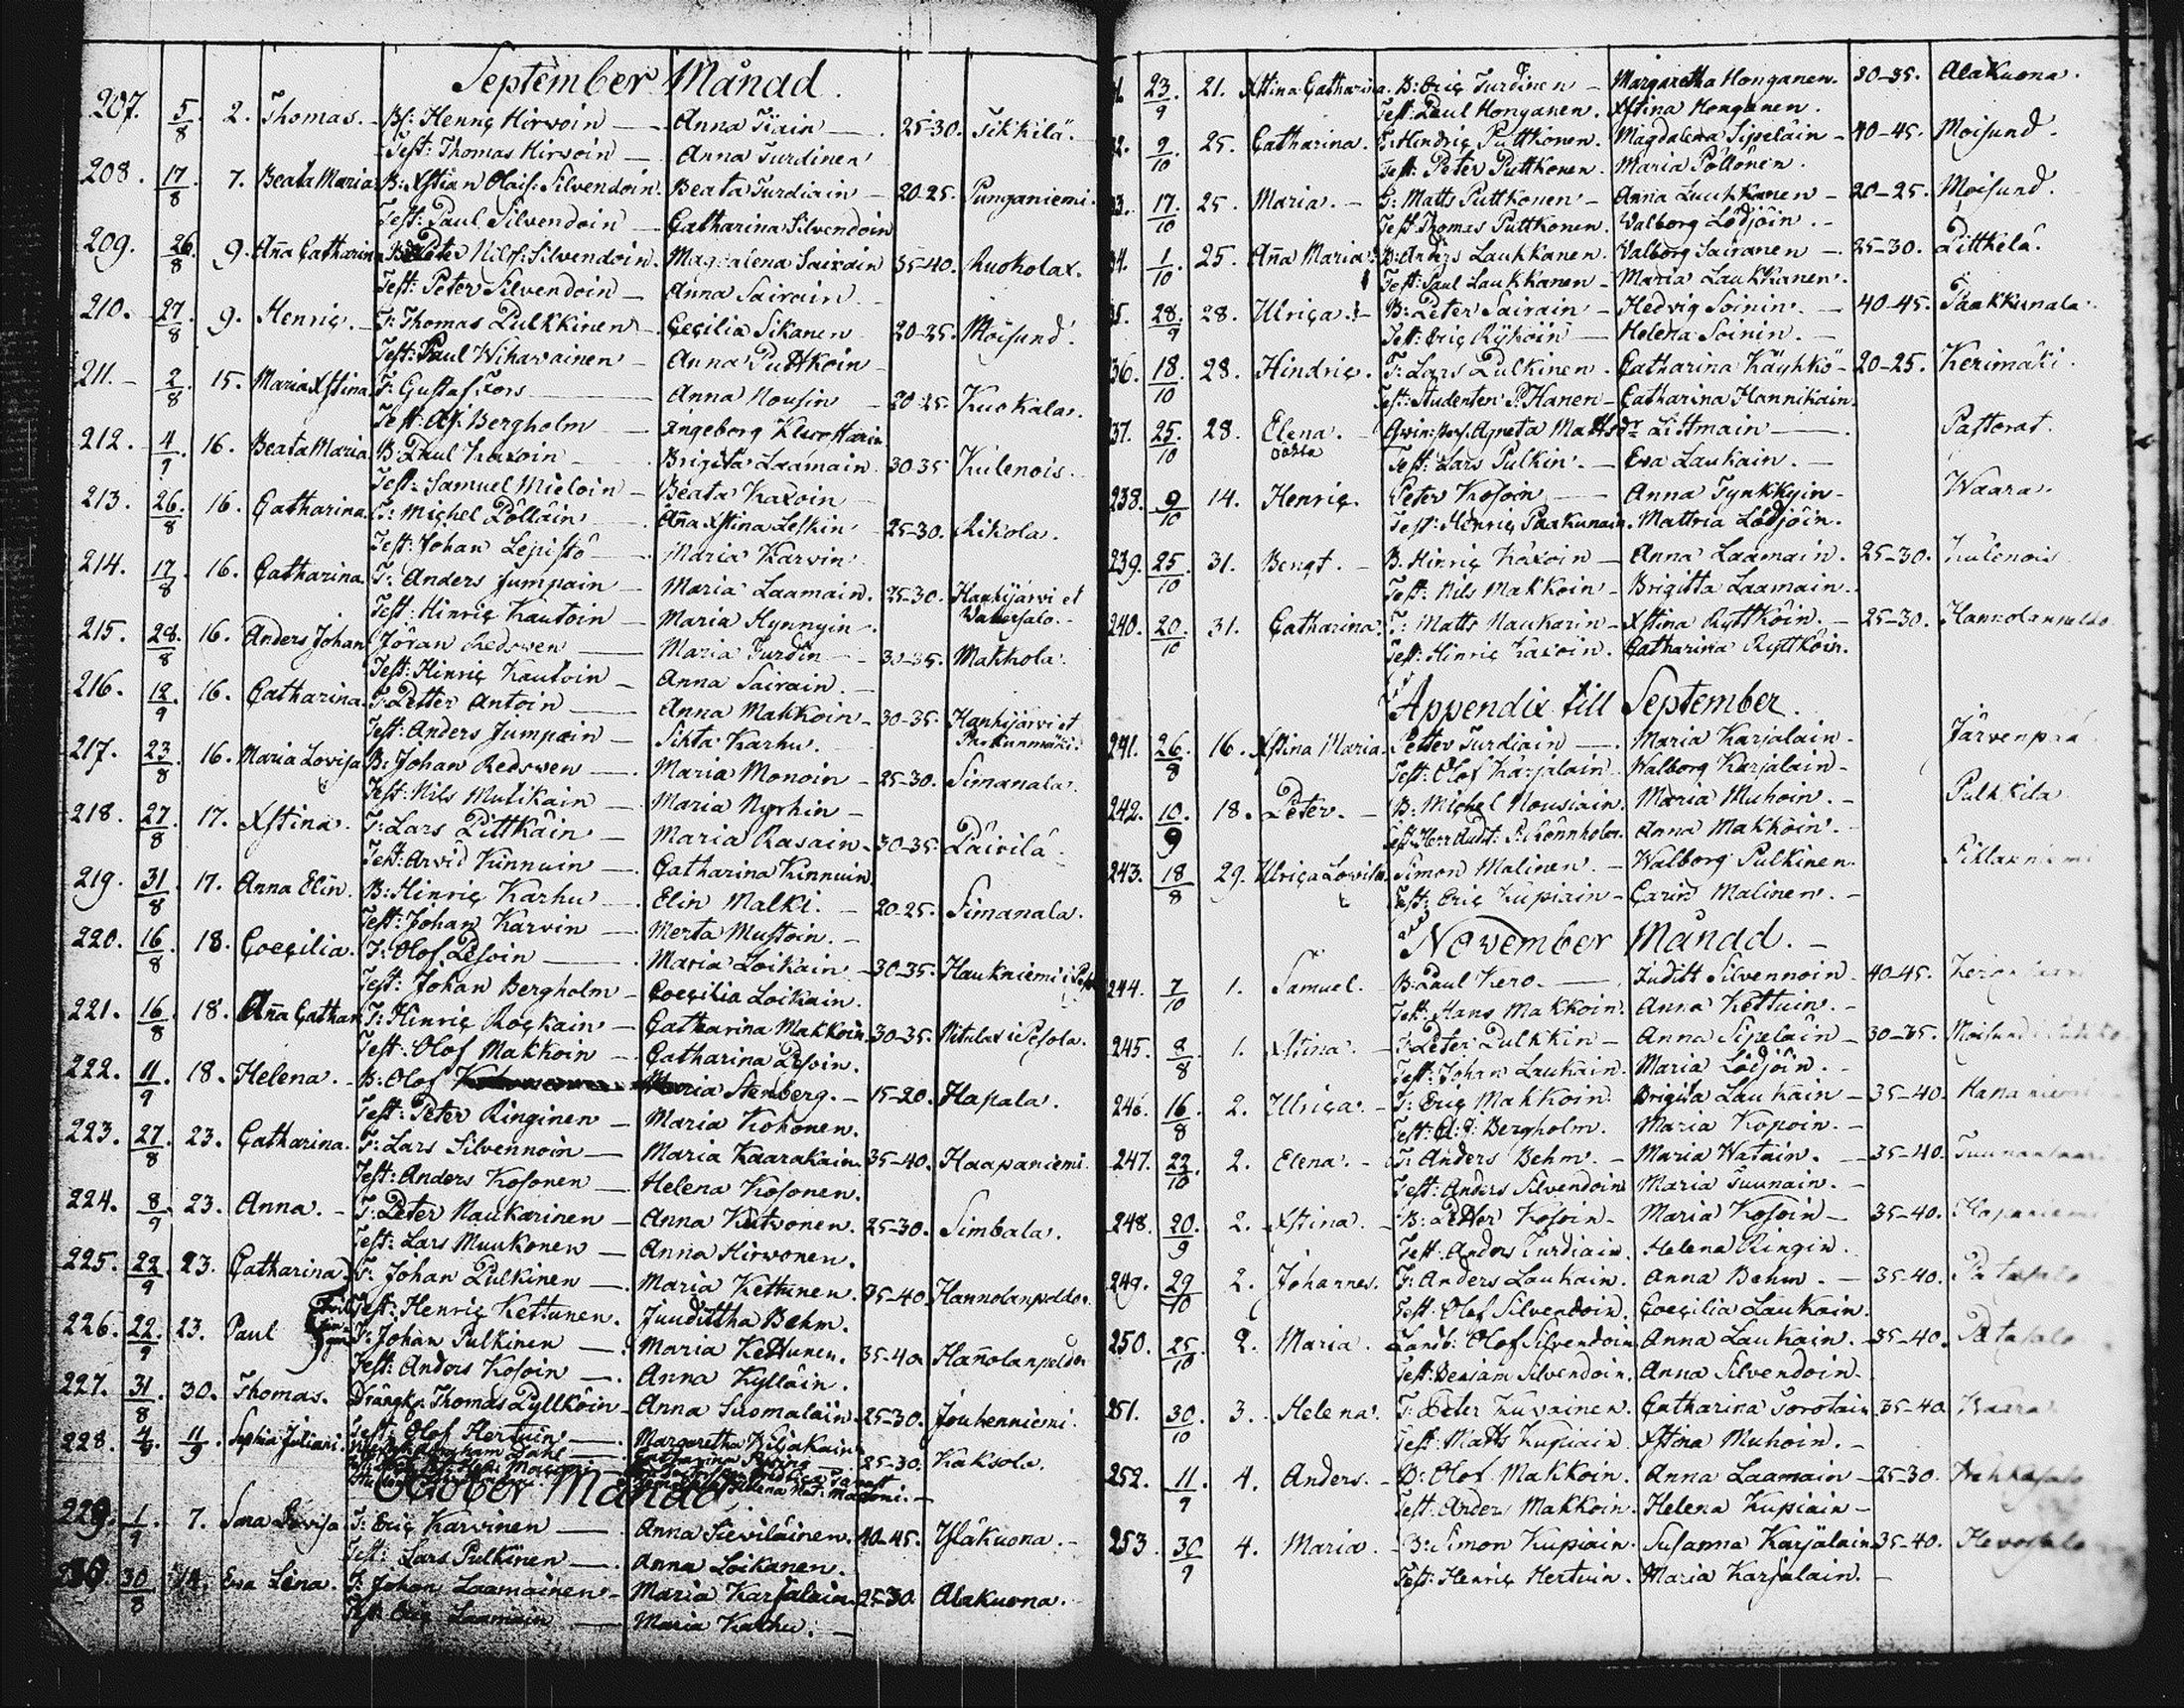 September Månad.
207. 5/8. 2. Thomas. Bs: Henriç Hirvoin — Anna Tiain — 25-30. Tikkilä.
Test: Thomas Hirvoin — Anna Turdinen
208. 17/8. 7. Beata Maria B: Xstian Olais: Silvendoin. Beata Turdiain — 20-25. Punganiemi.
Test: Paul Silvendoin — Catharina Silvendoin
209. 26/8. 9. Aña Catharina B: Peter Nilss: Silvendoin. Magdalena Sairain 35-40. Ruokolax.
Test: Peter Silvendoin — Anna Sairain.
210. 27/8. 9. Henriç. — T: Thomas Pulkkinen — Çeçilia Sikanen 20-25. Moisund.
Test: Paul Wihavainen — Anna Puttkoin
211. — 2/8. 15. Maria Xstina T: Gustaf Fors — Anna Nousin — 20-25. Kuokala.
Test: Aj. Bergholm — Ingeborg
212. 4/9. 16. Beata Maria B: Paul Kaxoin — Brigita Laamain. 30-35 Kulenois.
Test: Samuel Mieloin — Beata Kaxoin
213. 26/8. 16. Catharina. T: Michel Pölläin — Aña Xstina Leskin — 25-30. Rikola.
Test: Johan Lepistö — Maria Karvin
214. 17/8. 16. Catharina T: Anders Jumpain — Maria Laamain. 25-30. Hankijärvi et
Test: Hinriç Kautoin — Maria Hynnyin —
215. 28/8. 16. Anders Johan Jöran Redswen — Maria Jurdin — 30-35. Makkola.
Test: Hinriç Kautoin — Anna Sairain. —
216. 12/9. 16. Catharina. T: Petter Antoin — Anna Makkoin — 30-35. Hankijärvi et
Test: Anders Jumpain — Sikta Karhu.
217. 23/8. 16. Maria Lovisa B: Johan Redswen — Maria Monoin — 25-30. Simanala.
Test: Nils Mulikain — Maria Nyrhin —
218. 27/8. 17. Xstina. T: Lars Pittkäin — Maria Rasain — 30-35. Päivilä.
Test: Arvid Kinnuin — Catharina Kinnuin.
219. 31/8. 17. Anna Elin. B: Hinriç Karhu — Elin Malki. — 20-25. Simanala.
Test: Johan Karvin — Merta Mustoin. —
220. 16/8. 18. Coeçilia. T: Olof Pesoin — Maria Loikain — 30-35. Haukniemi i
Test: Johan Bergholm — Coeçilia Loikain.
221. 16/8. 18. Aña Cathar. T: Hinriç Roçkain — Catharina Makkoin 30-35. Nitulax i Pesola.
Test: Olof Makkoin — Catharina Pesoin.
222. 11/9. 18. Helena. — B: Olof Maria Stenberg. — 15-20. Hapala.
Test: Peter Ringinen — Maria Kohonen.
223. 27/8. 23. Catharina. T: Lars Silvennoin — Maria Kaarakain 35-40. Haapaniemi.
Test: Anders Kosonen — Helena Kosonen.
224. 8/9. 23. Anna. — T: Peter Naukarinen — Anna Kutvonen. 25-30. Simbala.
Test: Lars Muukonen — Anna Hirvonen.
225. 22/9. 23. Catharina T: Johan Pulkinen — Maria Kettunen. 35-40 Hannolanpeldo.
Test: Henriç Kettunen. Juudittha Behm.
226. 22/9. 23. Paul T: Johan Pulkinen — Maria Kettunen. 35-40 Hañolanpeldo
Test: Anders Kosoin — Anna Kylläin.
227. 31/8. 30. Thomas. Drängk: Thomas Pyllköin — Anna Suomalain 25-30. Jouhenniemi.
Test: Olof Hertuin — Margaretha Kiljakain
228. 4/9. 11/9. Sophia Juliani. 25-30. Kaksola.
October Månad
229. 1/9. 7. Sara Lovisa T: Eriç Karvinen — Anna Sieviläinen. 40-45. Yläkuona. —
Test: Lars Pulkinen — Anna Loikanen.
230. 30/8. 14. Eva Lena. T: Johan Laamainen — Maria Karjalain 25-30 Alakuona.
Test: Eriç Laamain — Maria Karhu. —
1. 23/9. 21. Xstina Catharina. B: Eriç Turdinen — Margaretha Honganen. 30-35. Alakuona.
Test: Paul Honganen. Xstina Honganen.
2. 9/10. 25. Catharina. T: Hindriç Puttkonen. Magdalena Sipeläin — 40-45. Moisund.
Test: Peter Puttkonen. Maria Pöllönen.
3. 17/10. 25. Maria. — T: Matts Puttkonen — Anna Luukkanen — 20-25. Moisund.
Test: Thomas Puttkonen. Walborg Lödjöin. —
4. 1/10. 25. Aña Maria. B: Anders Laukkanen. Valborg Sairanen — 25-30. Pittkelä.
Test: Paul Laukkanen — Maria Laukkanen.
5. 28/9. 28. Ulriça. — B: Peter Sairain — Hedvig Soinin. — 40-45. Paakkunala.
Test: Eriç Ryköin — Helena Soinin. —
36. 18/10. 28. Hindriç. T: Lars Pulkinen. Catharina Käyhkö — 20-25. Kerimäki.
Test: Studenten P. Hanen — Catharina Hannikain.
37. 25/10. 28. Elena. — Qvin: Agneta Mattsdr Littmain — Pastorat.
oäkta Test: Lars Pulkin. — Eva Laukain. —
238. 9/10 14. Henriç. Peter Kosoin — Anna Tynkkyin — Waara.
Test: Hinriç Paakunain. Mattria Lödjöin.
239. 25/10 31. Bengt. — B. Hinriç Kaxoin — Anna Laamain. 25-30. Kulenois
Test: Nils Makkoin — Brigitta Laamain.
240. 20/10 31. Catharina. T: Matts Naukarin — Xstina Ryttköin. — 25-30. Hannolanpeldo
Test: Hinriç Kaxoin. Catharina Ryttköin.
Appendix till September.
241. 26/8 16. Xstina Maria. Petter Turdiain — Maria Karjalain — Järvenpää
Test: Olof Karjalain. Walborg Karjalain —
242. 10/9 18. Peter. — B: Michel Nousiain. Maria Muhoin. — Pulkkila
Anna Makkoin. —
243. 18/8 29. Ulriça Lovisa. Simon Malinen. — Walborg Pulkinen.
Test: Eriç Kupiain — Carin Malinen. —
November Månad. —
244. 7/10 1. Samuel. B: Paul Kero. — Juditt Silvennoin — 40-45.
Test: Hans Makkoin. Anna Kettuin. —
245. 8/8 1. Xstina. — T: Peter Pulkkin — Anna Sipeläin — 30-35.
Test: Johan Laukain. Maria Lödjöin. —
246. 16/8 2. Ulriça. — T: Eriç Makkoin. Brigita Laukain — 35-40.
Test: A: J: Bergholm. Maria Kopoin. —
247. 22/10 2. Elena. — T: Anders Behm. — Maria Watain. — 35-40.
Test: Anders Silvendoin Maria Suunain. —
248. 20/9 2. Xstina. — B: Petter Kosoin — Maria Kosoin — 35-40. Hapaniemi
Test: Anders Turdiain. Helena Ringin.
249. 29/10 2. Johannes. T: Anders Laukain. Anna Behm. — 35-40. Patasalo
Test: Olof Silvendoin. Coeçilia Laukain.
250. 25/10 2. Maria. Landb: Olof Silvendoin Anna Laukain. — 35-40. Patasalo
Test: Benjam Silvendoin. Anna Silvendoin.
251. 30/10 3. Helena. T: Peter Kuvainen. Catharina Sorotain 35-40 Waara
Test: Matts Kupiain. Xstina Muhoin. —
252. 11/9 4. Anders. — B: Olof Makkoin. Anna Laamain — 25-30.
Test: Anders Makkoin. Helena Kupiain —
253. 30/9 4. Maria. — B: Simon Kupiain. Susanna Karjalain 35-40. Hevossalo
Test: Henriç Hertuin. Maria Karjalain. —